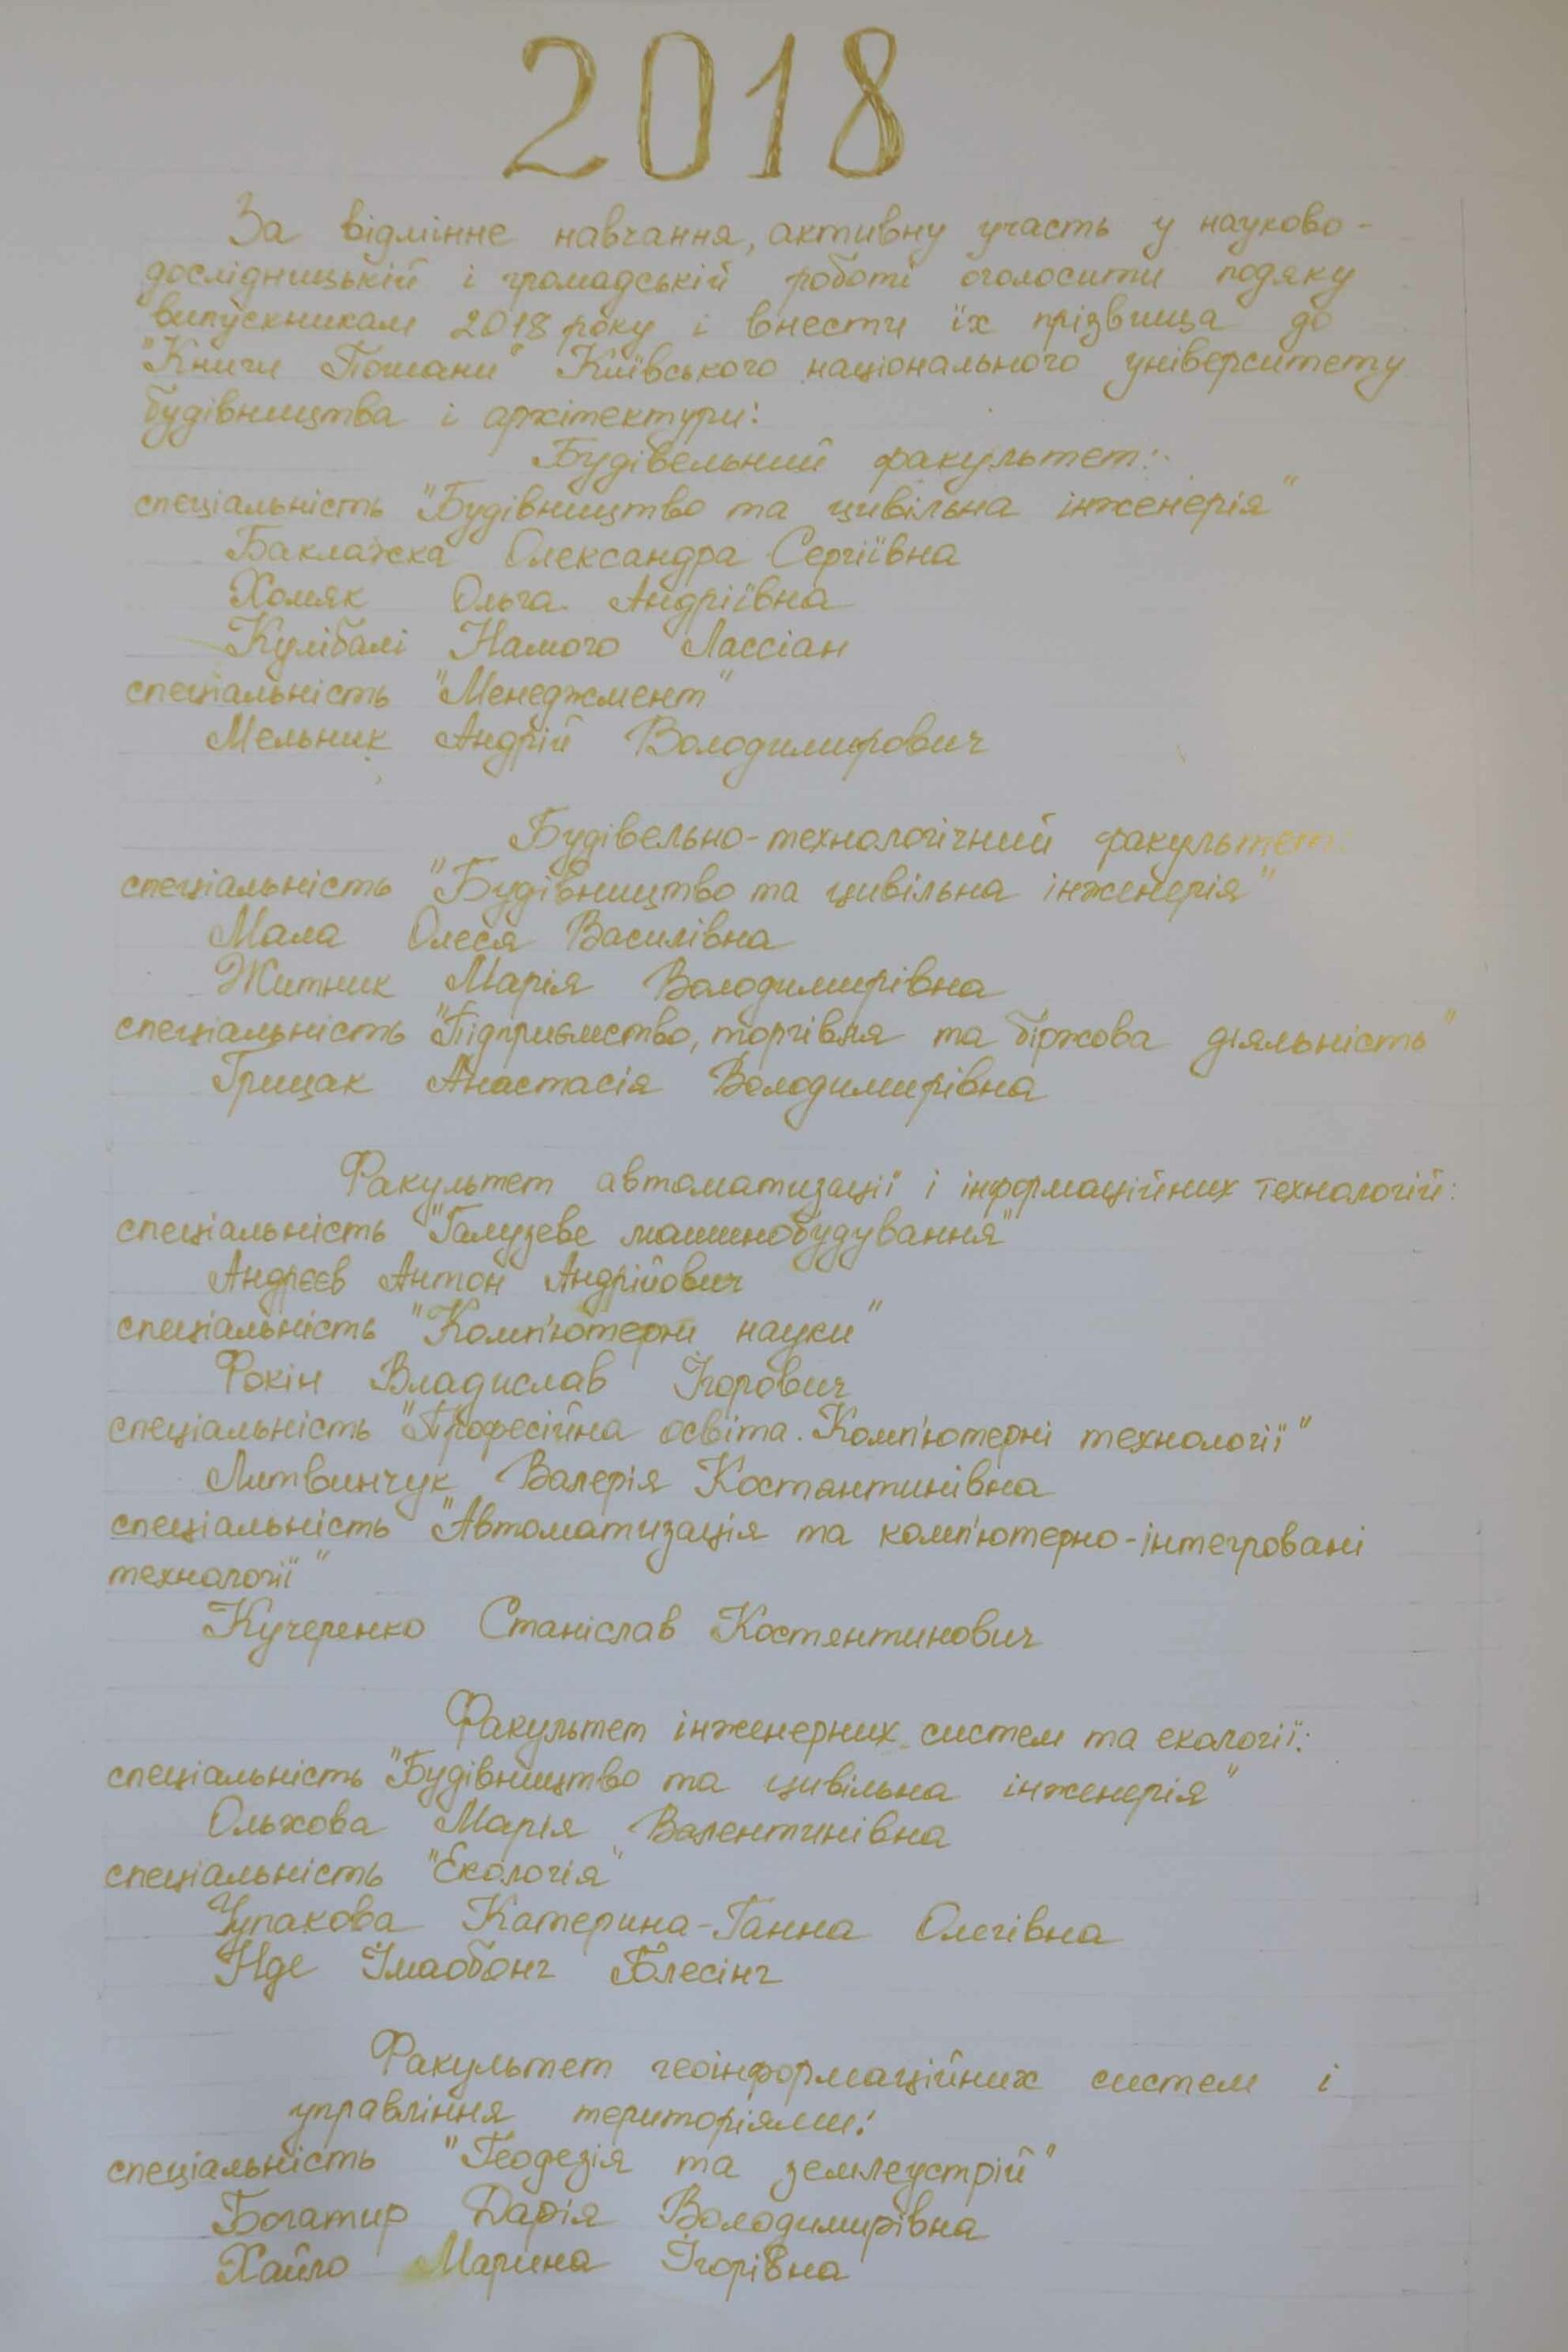 2018
За відмінне навчання, активну участь у науково-
дослідницькій і громадській роботі оголосити подяку
випускникам 2018 року і внести їх прізвища до
"Книги Пошани" Київського національного університету
будівництва і архітектури:
Будівельний факультет:
спеціальність "Будівництво та цивільна інженерія"
Баклажка Олександра Сергіївна
Хомяк Ольга Андріївна
Кулібалі Намого Лассіан
спеціальність "Менеджмент"
Мельник Андрій Володимирович
Будівельно-технологічний факультет:
спеціальність "Будівництво та цивільна інженерія"
Мала Олеся Василівна
Житник Марія Володимирівна
спеціальність "Підприємство, торгівля та біржова діяльність"
Грицак Анастасія Володимирівна
Факультет автоматизації і інформаційних технологій:
спеціальність "Галузеве машинобудування"
Андрєєв Антон Андрійович
спеціальність "Комп'ютерні науки"
Фокін Владислав Ігорович
спеціальність "Професійна освіта. Комп'ютерні технології"
Литвинчук Валерія Костянтинівна
спеціальність "Автоматизація та комп'ютерно-інтегровані
технології"
Кучеренко Станіслав Костянтинович
Факультет інженерних систем та екології:
спеціальність "Будівництво та цивільна інженерія"
Ольхова Марія Валентинівна
спеціальність "Екологія"
Чупакова Катерина-Ганна Олегівна
Нде Імаобонг Блесінг
Факультет геоінформаційних систем і
управління територіями:
спеціальність "Геодезія та землеустрій"
Богатир Дарія Володимирівна
Хайло Марина Ігорівна